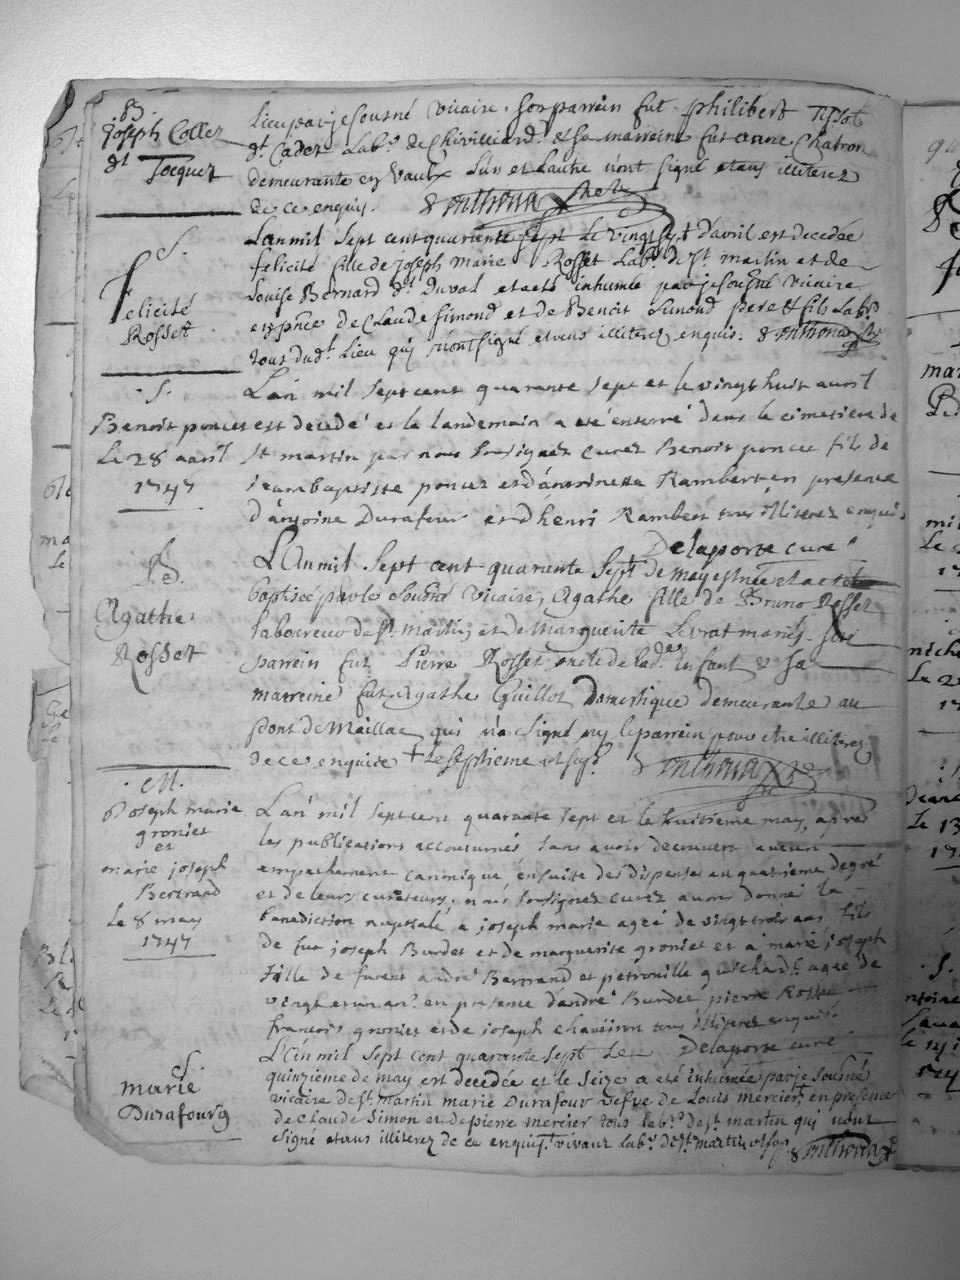 B.
joseph Collet
dt Jocquet
lieu, par je sousné vicaire. son parrein fut philibert Tissot
dt Cadet Labr. de Chivilliard, et sa marreine fut anne Chatron
demeurante en Vaux Lun et Lautre n'ont signé etans illiterez
de ce enquis.
S.
felicité
Rosset
Lan mil sept cent quarante sept le vingt sept d'avril est decedée
felicité fille de joseph marie Rosset Labr. de st. martin et de
Louise Bernard dt. Duval et a eté inhumée par je sousné vicaire
en pnce de Claude Simond et de Benoit Simond pere et fils Labrs
tous dudt. Lieu qui n'ont signé etans illiterez enquis.
S.
Benoit poncet
Le 28 avril
1747
Lan mil sept cent quarante sept et le vingt huit avril
est decedé et le landemain a eté enterré dans le cimetiere de
st martin par nous soussignez curez Benoit poncet fils de
jeambaptiste poncet et d'antoinette Rambert en presence
d'antoine Durafour et d'henri Rambert tous illiterez enquis
Delaporte curé
B.
Agathe
Rosset
L'An mil sept cent quarante sept de may est née et a eté
baptisée par le sousné vicaire, Agathe fille de Bruno Rosset
laboureur de st. martin, et de marguerite Levrat mariés. son
parrein fut Pierre Rosset oncle de lade. enfant et sa
marreine fut Agathe Guillot Domestique demeurante au
pont de Maillac qui n'a signé ny le parrein pour etre illiterez
de ce enquise + le septieme
M.
joseph marie
groniet
et
marie joseph
Bertrand
Le 8 may
1747
Lan mil sept cent quarante sept et le huitieme may, apres
les publications accoutumés sans avoir decouvert aucun
empechement canonique, ensuite des dispense au quatrieme degré
et de leurs curateurs, nous soussignez curez avons donné la
benediction nuptiale a joseph marie ageé de vingt trois ans fils
de fut joseph Burdet et de marguerite groniet et a marie joseph
fille de furent andré Bertrand et petronille guichard, agee de
vingt et un an. en presence d'andré Burdet pierre Rosset
francois groniet et de joseph tous illiterez enquis.
Delaporte curé
S.
marie
Durafourg
L'An mil sept cent quarante sept Le
quinzieme de may est decedée et le seize a eté inhumée par je sousné
vicaire de st. martin marie Durafour vefve de Louis mercier, en presence
de Claude Simon et de pierre mercier tous labrs. de st. martin qui n'ont
signé etans illiterez de ce enquis